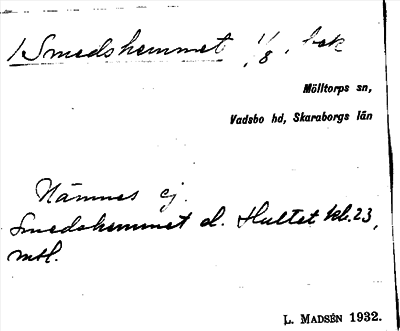 1 Smedshemmet 1/8, bek
Mölltorps sn,
Vadsbo hd, Skaraborgs län
Nämnes ej.
Smedshemmet el. Hultet kl. 23,
mtl.
L. MADSÉN 1932.